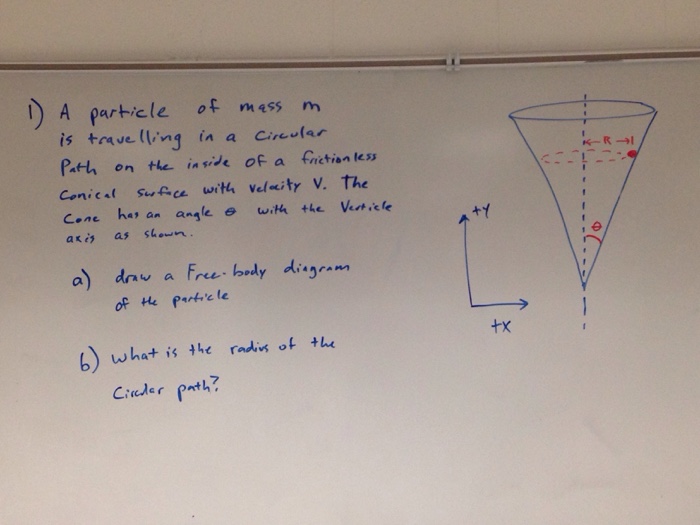 1) A particle of mass m
is travelling in a circular
Path on the inside of a frictionless
Conical surface with velocity V. The
Cone has an angle θ with the Verticle
axis as shown.
a) draw a Free-body diagram
of the particle
b) what is the radius of the
Circular path?
R
θ
+Y
+X